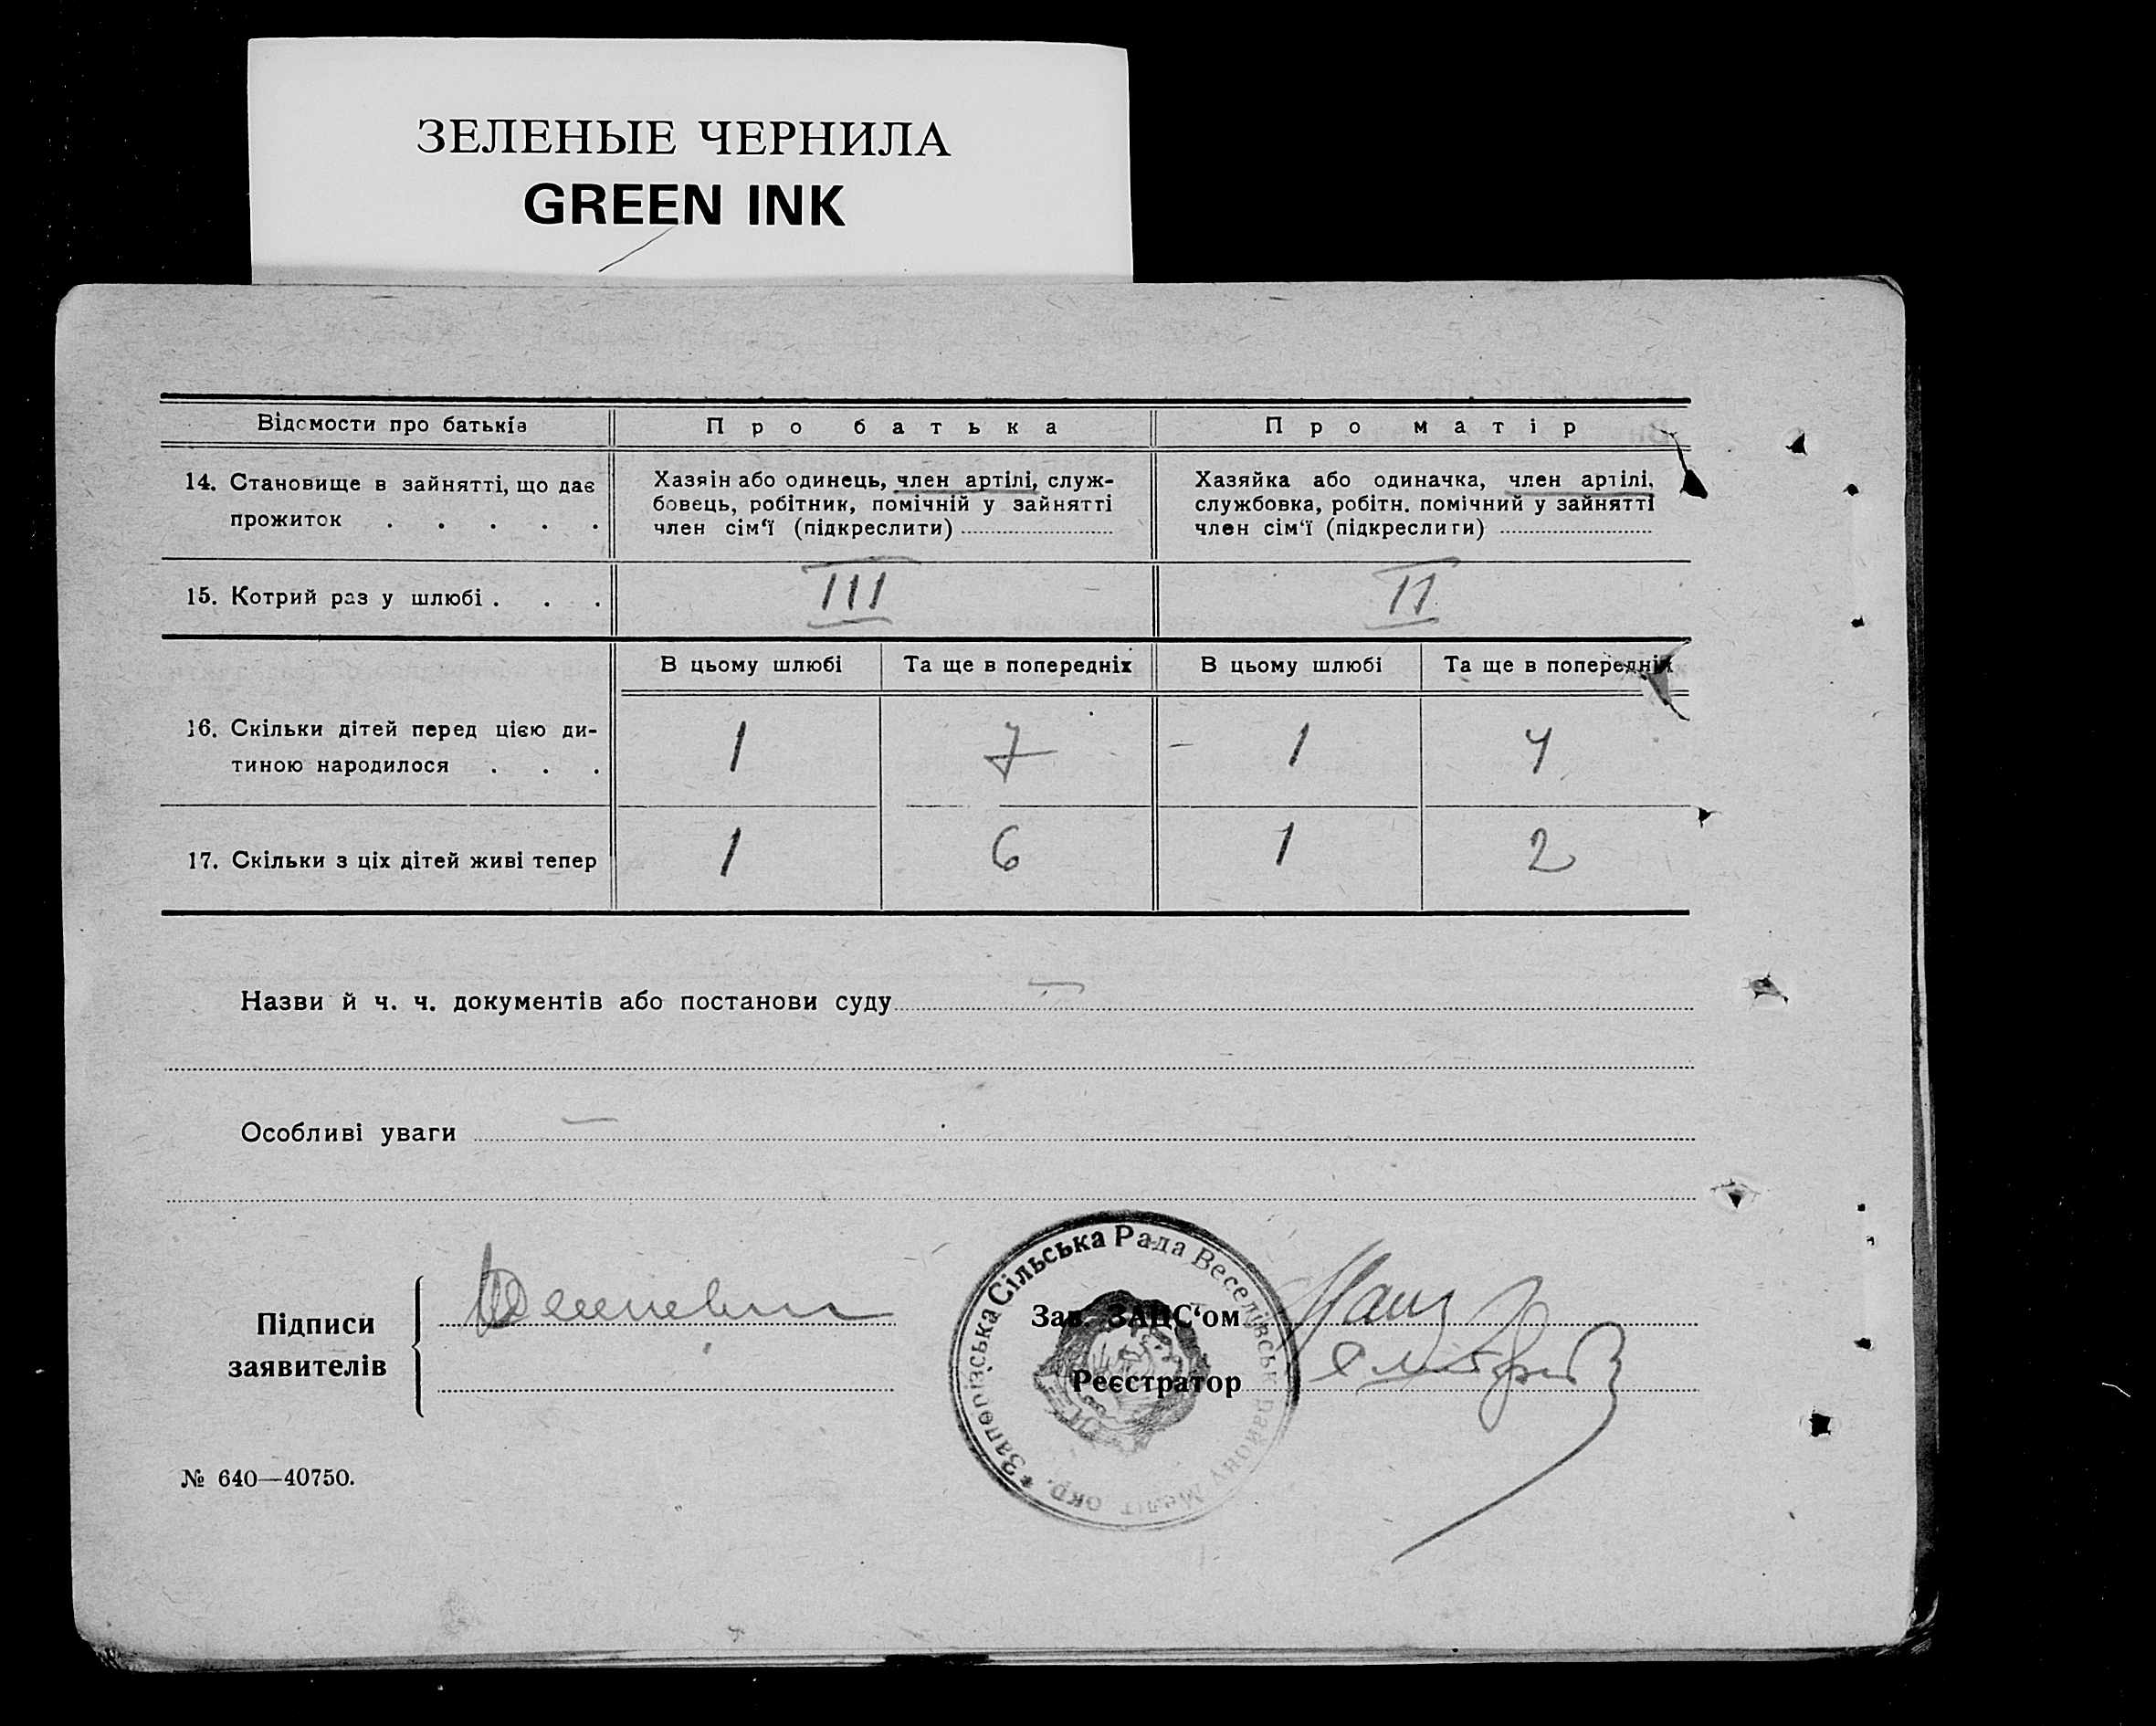 ЗЕЛЕНЫЕ ЧЕРНИЛА
GREEN INK
Відомости про батьків
Про батька
Про матір
14. Становище в зайнятті, що дає
прожиток . . . . .
Хазяін або одинець, член артілі, служ-
бовець, робітник, помічній у зайнятті
член сім‘ї (підкреслити)
Хазяйка або одиначка, член артілі,
службовка, робітн. помічний у зайнятті
член сім‘ї (підкреслити)
15. Котрий раз у шлюбі . . .
III
II
В цьому шлюбі
Та ще в попередніх
В цьому шлюбі
Та ще в попередніх
16. Скільки дітей перед цією ди-
тиною народилося . . .
1
7
1
4
17. Скільки з ціх дітей живі тепер
1
6
1
2
Назви й ч. ч. документів або постанови суду —
Особливі уваги —
Підписи
заявителів
Зав. ЗАГС‘ом
Реєстратор
Запорізська Сільська Рада Веселівськ. району Меліт. окр.
№ 640—40750.